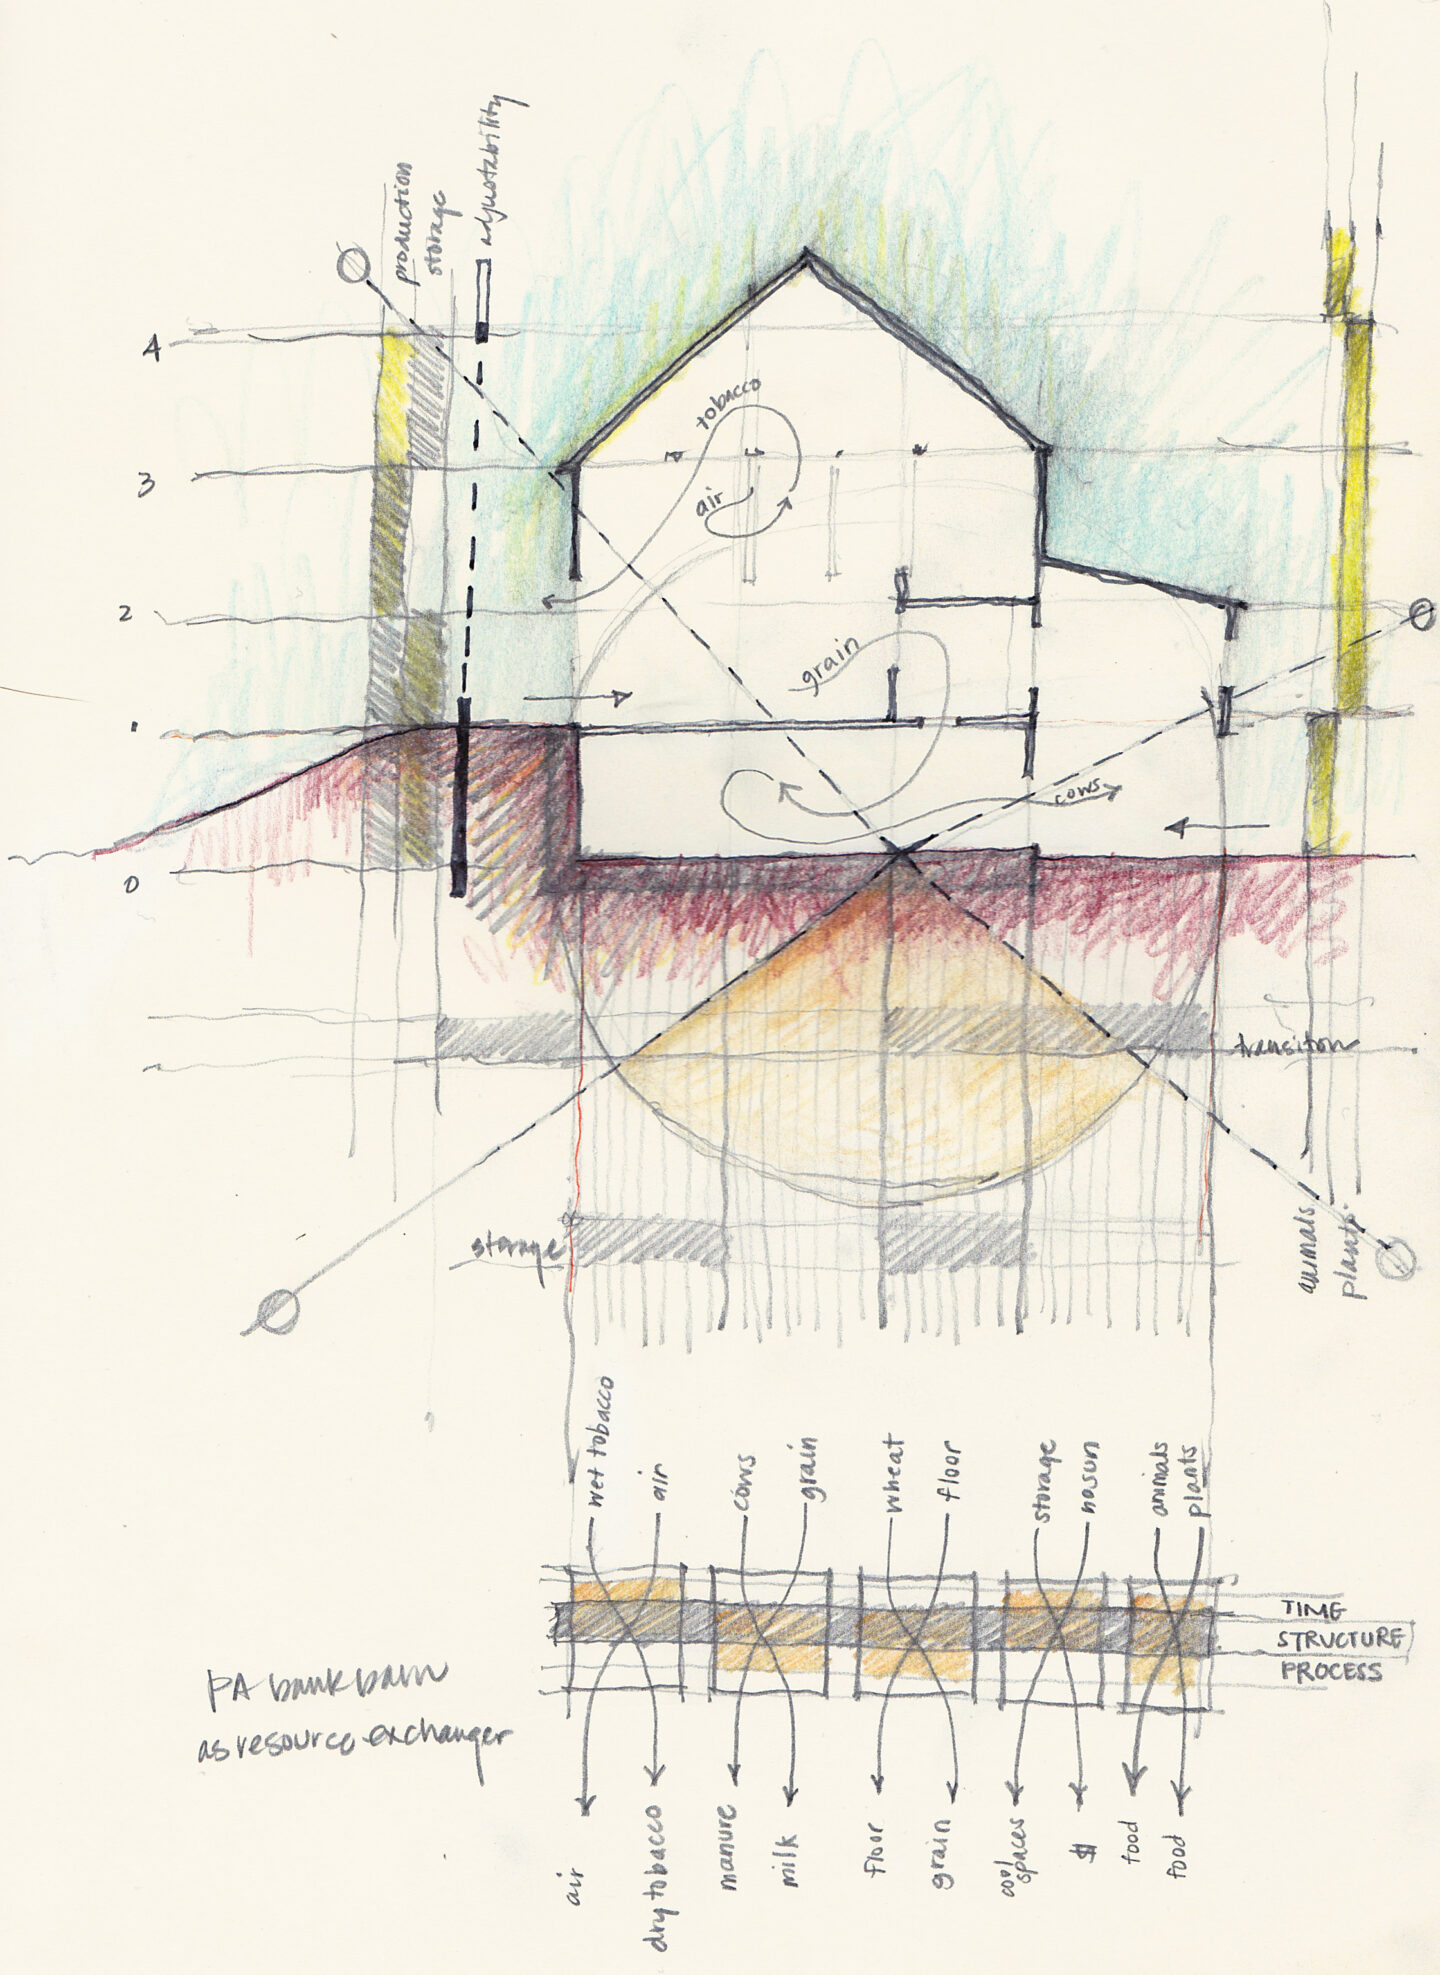 production
storage
adjustability
4
3
2
1
0
tobacco
air
grain
cows
transition
storage
animals
plants
wet tobacco
air
cows
grain
wheat
floor
storage
no sun
animals
plants
TIME
STRUCTURE
PROCESS
PA bank barn
as resource exchanger
air
dry tobacco
manure
milk
floor
grain
cool
spaces
$
food
food